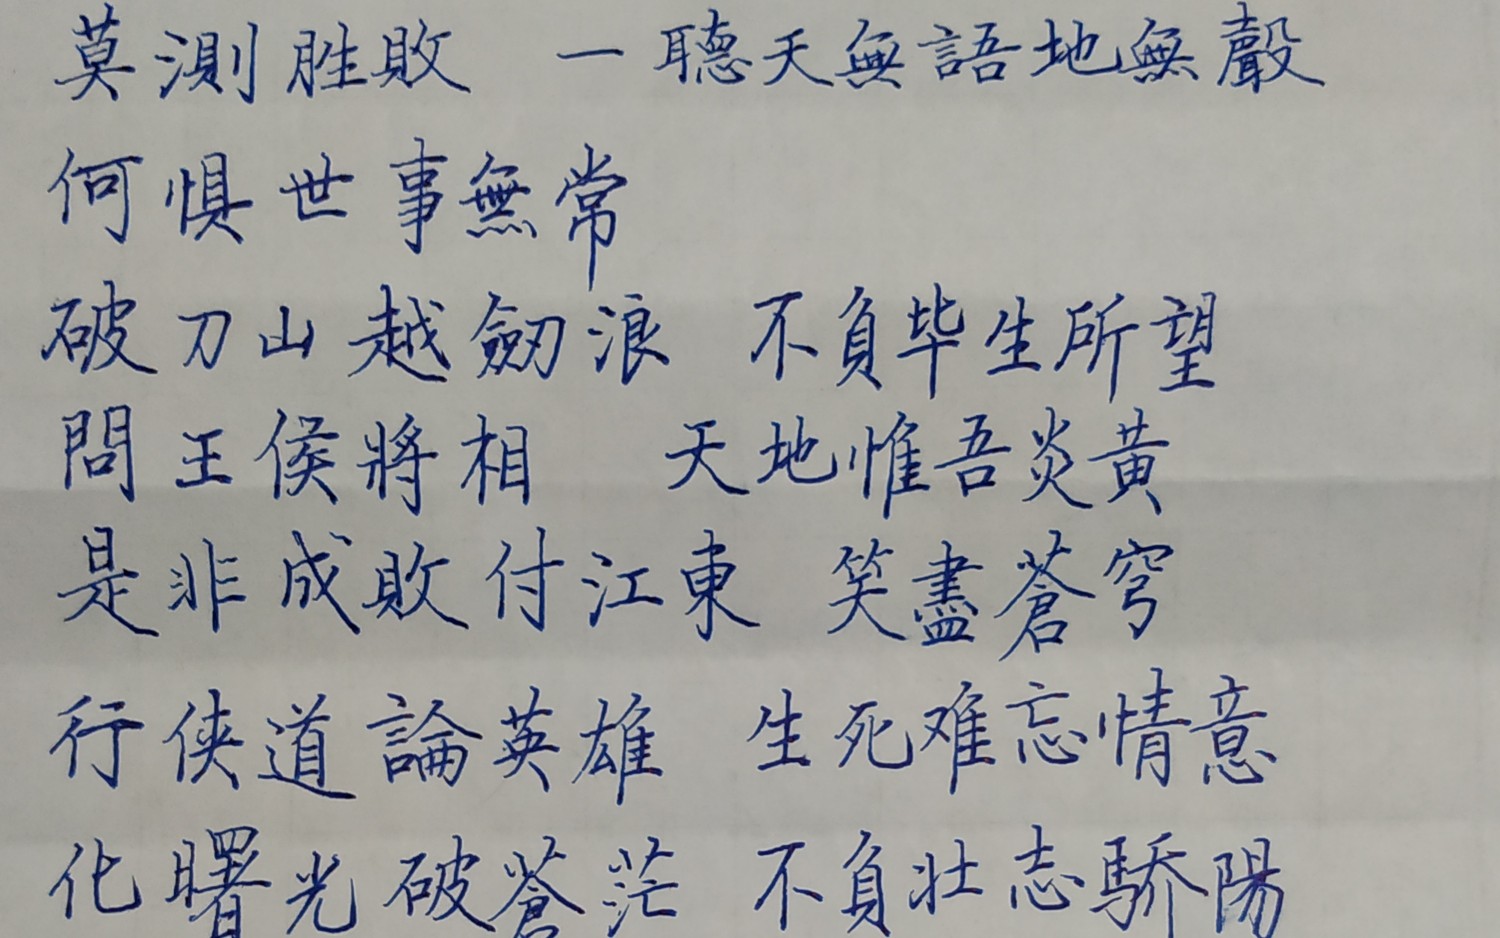 莫測胜敗 一聽天無語地無聲
何惧世事無常
破刀山越劒浪 不負毕生所望
問王侯將相 天地惟吾炎黄
是非成敗付江東 笑盡蒼穹
行侠道論英雄 生死难忘情意
化曙光破蒼茫 不負壮志驕陽